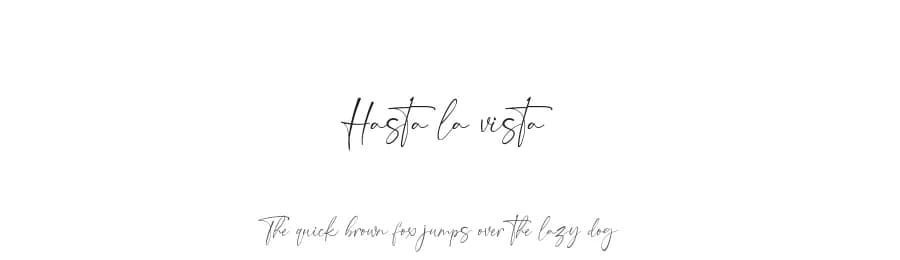 Hasta la vista
The quick brown fox jumps over the lazy dog